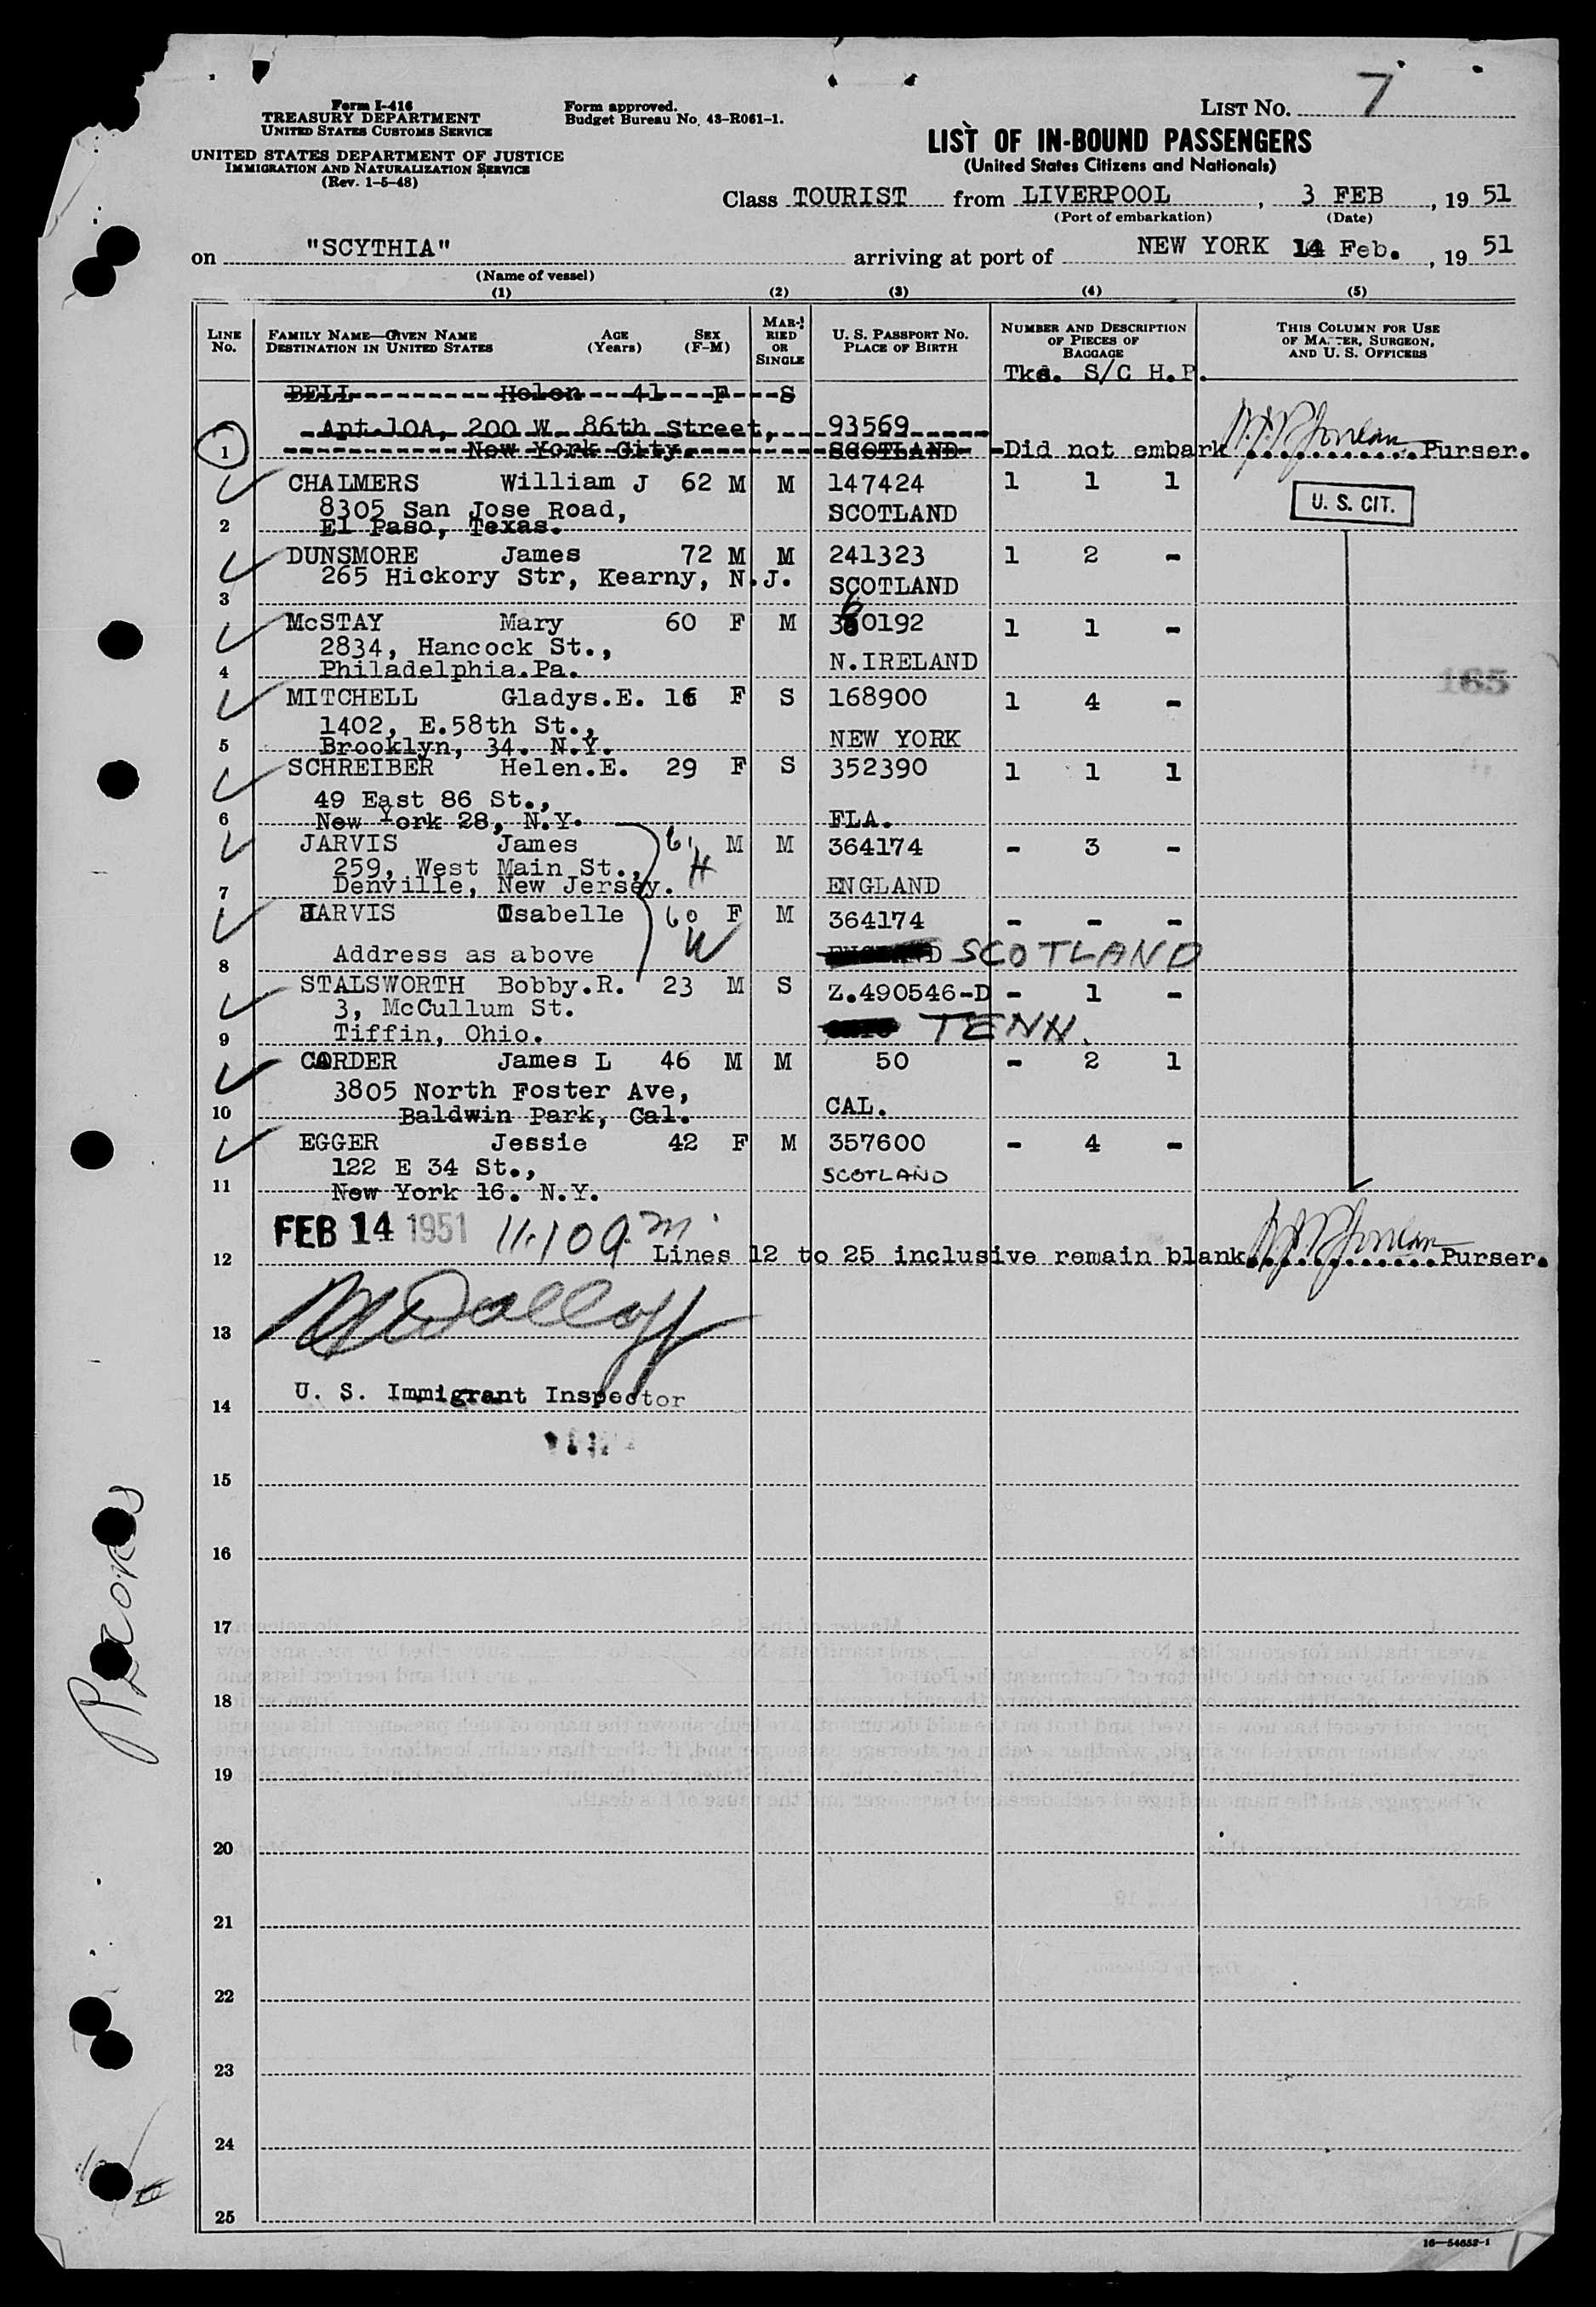 Form I-416
TREASURY DEPARTMENT
UNITED STATES CUSTOMS SERVICE
UNITED STATES DEPARTMENT OF JUSTICE
IMMIGRATION AND NATURALIZATION SERVICE
(Rev. 1-5-48)
Form approved.
Budget Bureau No. 43-R061-1.
LIST NO. 7
LIST OF IN-BOUND PASSENGERS
(United States Citizens and Nationals)
Class TOURIST from LIVERPOOL, 3 FEB, 19 51
(Port of embarkation) (Date)
on "SCYTHIA" arriving at port of NEW YORK 14 Feb., 19 51
(Name of vessel)
(1) (2) (3) (4) (5)
LINE No. FAMILY NAME—GIVEN NAME DESTINATION IN UNITED STATES AGE (Years) SEX (F-M) MARRIED OR SINGLE U. S. PASSPORT NO. PLACE OF BIRTH NUMBER AND DESCRIPTION OF PIECES OF BAGGAGE THIS COLUMN FOR USE OF MASTER, SURGEON, AND U. S. OFFICERS
Tks. S/C H.P.
BELL Helen 41 F S
Apt 10A, 200 W. 86th Street, 93569
1 New York City. SCOTLAND Did not embark Purser.
CHALMERS William J 62 M M 147424 1 1 1
8305 San Jose Road, SCOTLAND U. S. CIT.
2 El Paso, Texas.
DUNSMORE James 72 M M 241323 1 2 -
265 Hickory Str, Kearny, N.J. SCOTLAND
3
McSTAY Mary 60 F M 360192 1 1 -
2834, Hancock St.,
4 Philadelphia.Pa. N.IRELAND
165
MITCHELL Gladys.E. 16 F S 168900 1 4 -
1402, E.58th St.,
5 Brooklyn, 34. N.Y. NEW YORK
SCHREIBER Helen.E. 29 F S 352390 1 1 1
49 East 86 St.,
6 New York 28, N.Y. FLA.
JARVIS James 61 M M 364174 - 3 -
259, West Main St., H
7 Denville, New Jersey. ENGLAND
JARVIS Isabelle 60 F M 364174 - - -
W
8 Address as above SCOTLAND
STALSWORTH Bobby.R. 23 M S Z.490546-D - 1 -
3, McCullum St.
9 Tiffin, Ohio. TENN.
CORDER James L 46 M M 50 - 2 1
3805 North Foster Ave,
10 Baldwin Park, Cal. CAL.
EGGER Jessie 42 F M 357600 - 4 -
122 E 34 St., SCOTLAND
11 New York 16. N.Y.
FEB 14 1951 11.10 a.m.
12 Lines 12 to 25 inclusive remain blank Purser.
13
U. S. Immigrant Inspector
14
15
16
17
18
19
20
21
22
23
24
25
16—54652-1